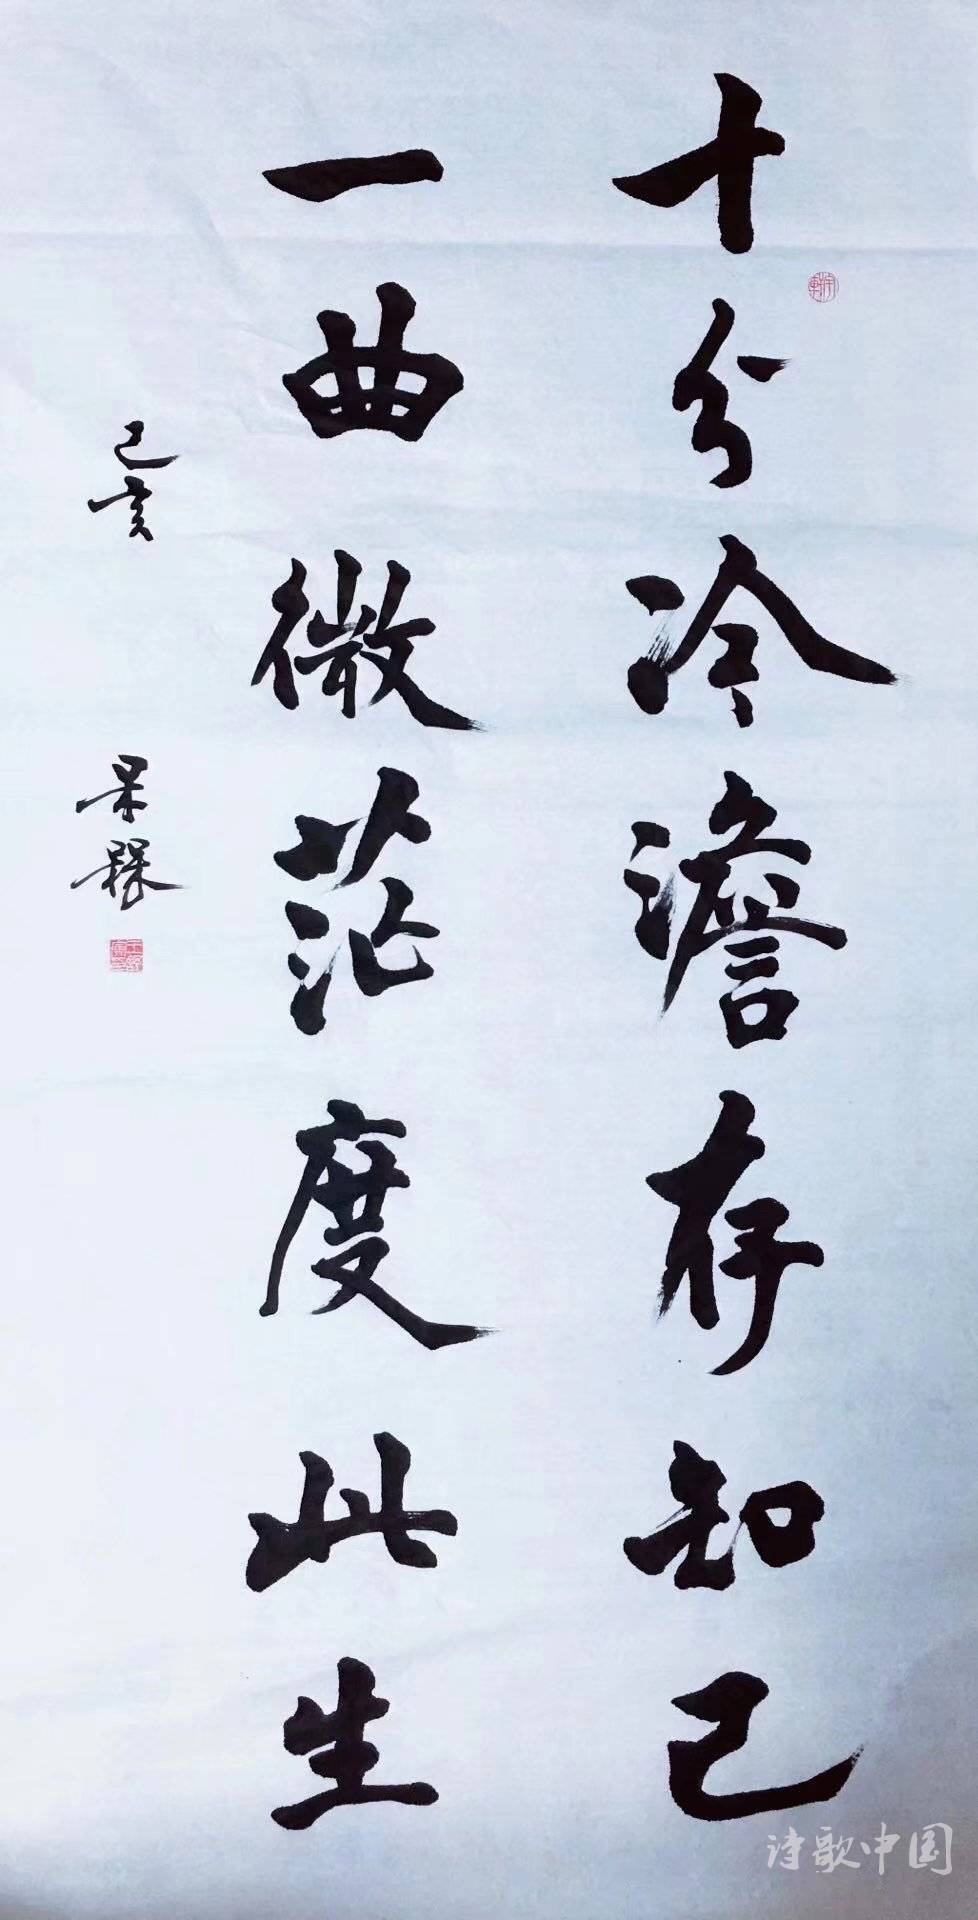 十分冷澹存知己
一曲微茫度此生
己亥
诗歌中国